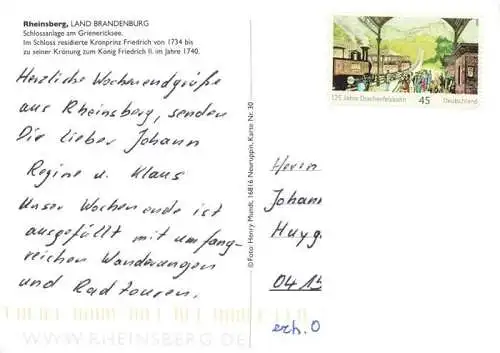 Rheinsberg, LAND BRANDENBURG
Schlossanlage am Grienericksee.
Im Schloss residierte Kronprinz Friedrich von 1734 bis
zu seiner Krönung zum König Friedrich II. im Jahre 1740.
Herzliche Wochenendgrüße
aus Rheinsberg, senden
Dir lieber Johann
Regine u. Klaus
Unser Wochenende ist
ausgefüllt mit umfang-
reichen Wanderungen
und Radtouren.
WWW.RHEINSBERG.DE
© Foto: Henry Mundt, 16816 Neuruppin, Karte Nr. 30
125 Jahre Drachenfelsbahn 45 Deutschland
Herrn
Johann
Huyg
04 15
erh. 0